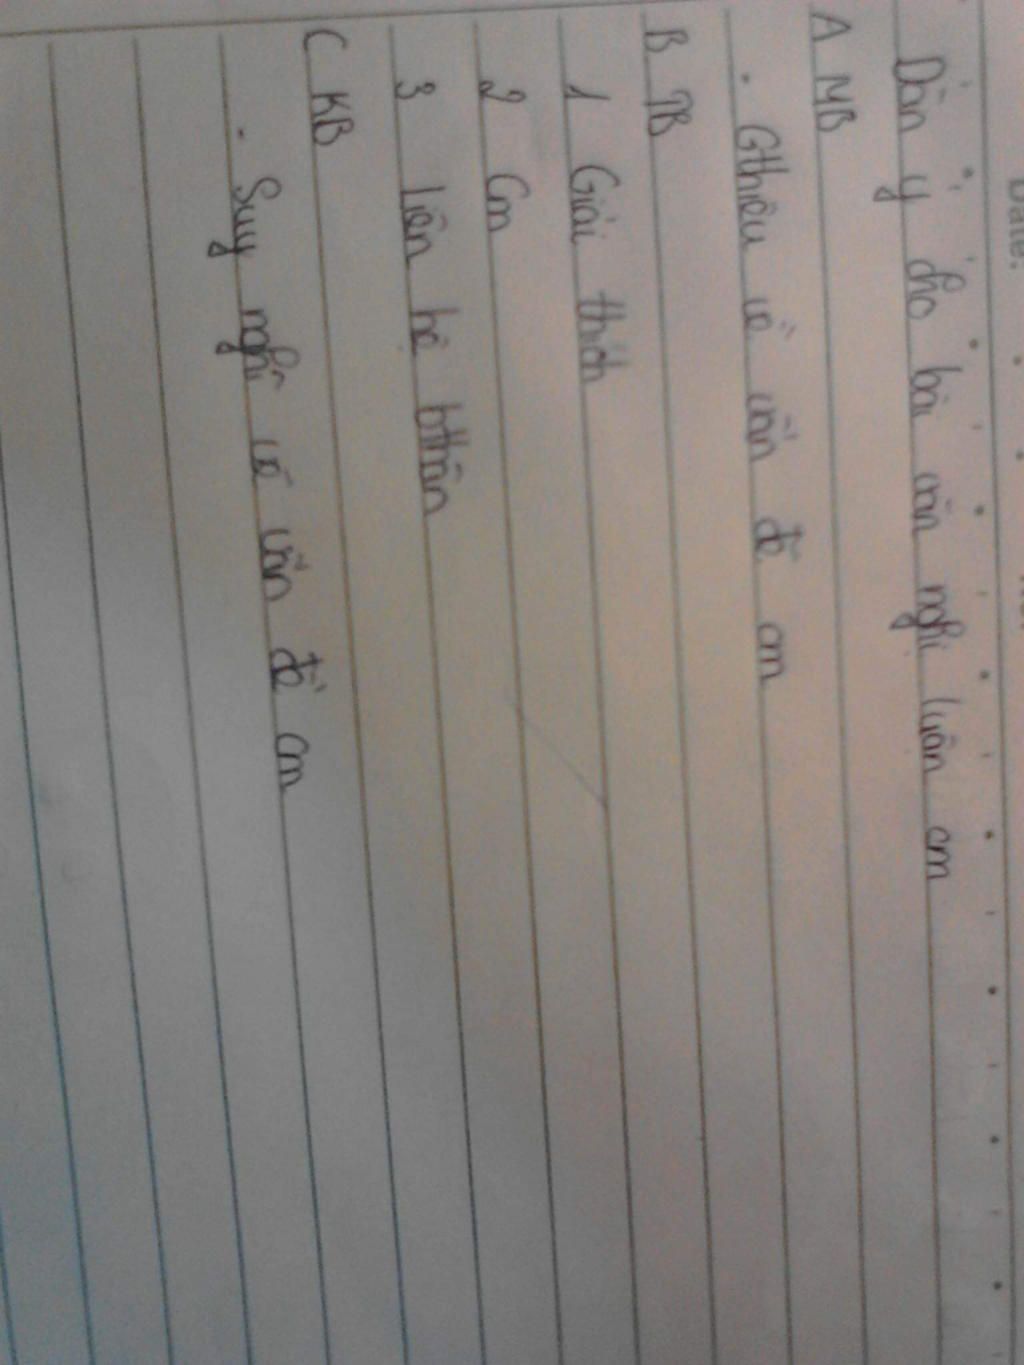 Date:
Dàn ý cho bài văn nghị luận cm
A MB
- Gthiệu về vấn đề cm
B TB
1 Giải thích
2 Cm
3 liên hệ bthân
C KB
- Suy nghĩ về vấn đề cm